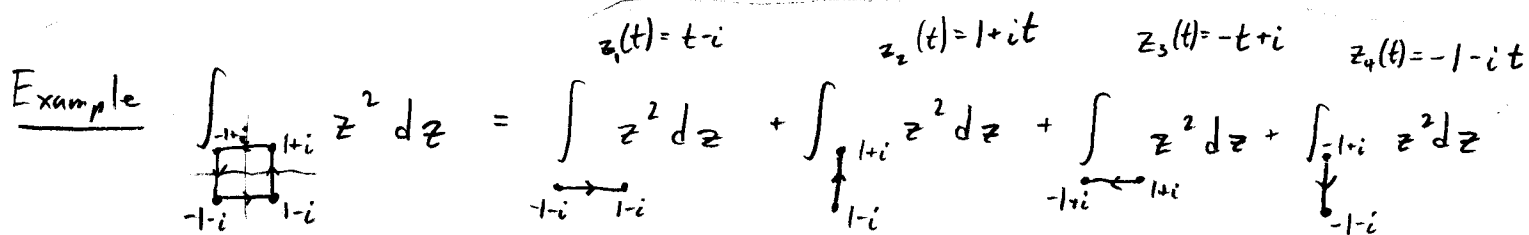 z₁(t)=t-i z₂(t)=1+it z₃(t)=-t+i z₄(t)=-1-it
Example ∫ z² dz = ∫ z² dz + ∫ z² dz + ∫ z² dz + ∫ z² dz
-1+i 1+i 1+i -1+i
-1-i 1-i -1-i 1-i 1-i -1+i 1+i -1-i